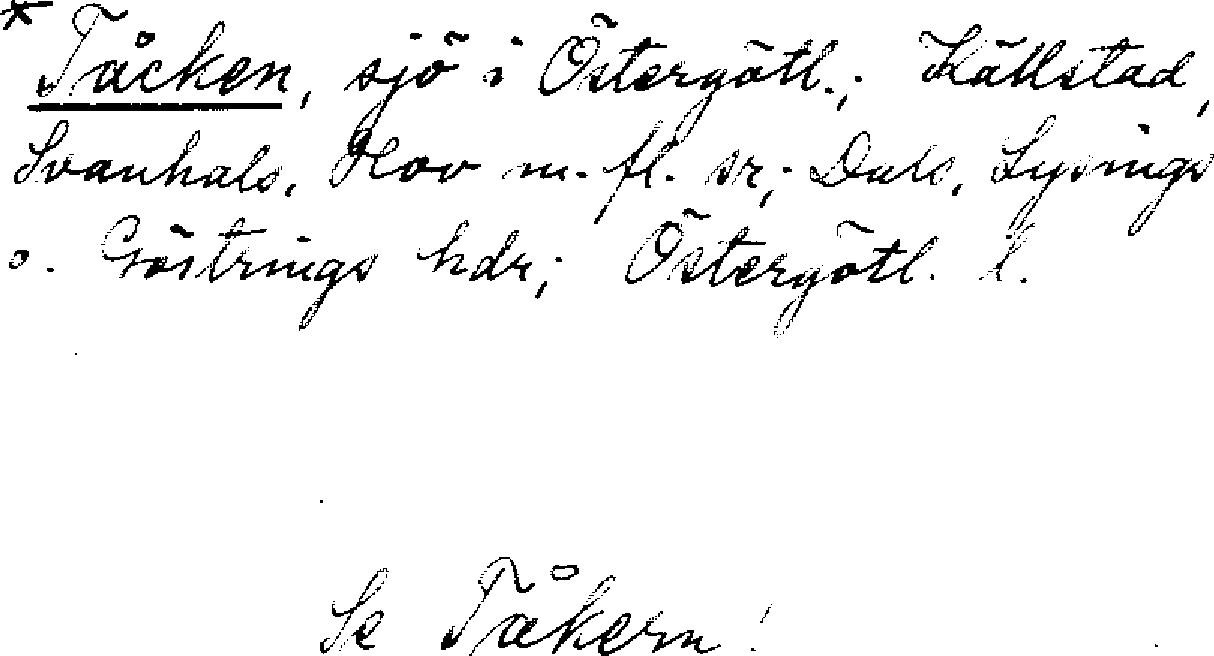 * Tåcken, sjö i Östergötl.; Källstad,
Svanhals, Hov m. fl. sr; Dals, Lysings
o. Göstrings hdr; Östergötl. l.
Se Tåkern!